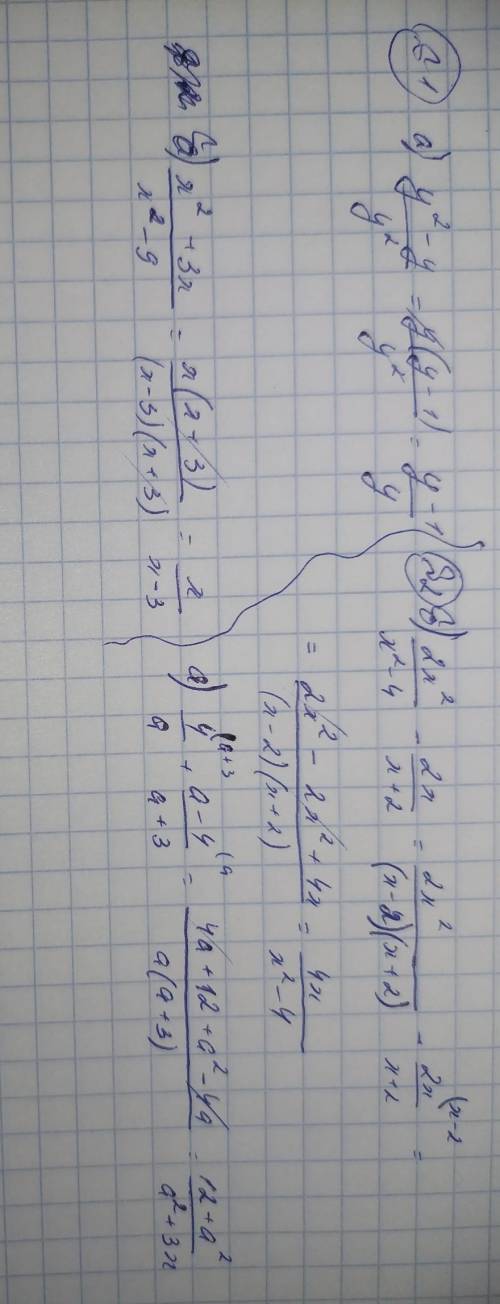 №1
а) y² - y / y² = y(y - 1) / y² = y - 1 / y
б) x² + 3x / x² - 9 = x(x + 3) / (x - 3)(x + 3) = x / x - 3
№2 б) 2x² / x² - 4 - 2x / x + 2 = 2x² / (x - 2)(x + 2) - 2x (x - 2 / x + 2 =
= 2x² - 2x² + 4x / (x - 2)(x + 2) = 4x / x² - 4
а) 4 (a + 3 / a + a - 4 (a / a + 3 = 4a + 12 + a² - 4a / a(a + 3) = 12 + a² / a² + 3x